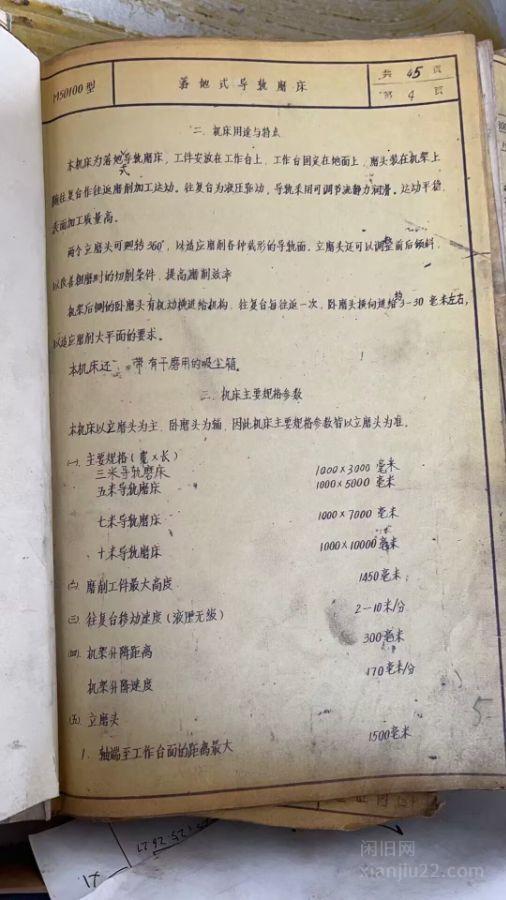 M50100型
落地式导轨磨床
共 45 页
第 4 页
二、机床用途与特点
本机床为落地式导轨磨床,工件安放在工作台上,工作台固定在地面上,磨头装在机架上
随往复台作往返磨削加工运动。往复台为液压驱动,导轨采用可调节流静力润滑。运动平稳,
表面加工质量高。
两个立磨头可迴转360°,以适应磨削各种截形的导轨面。立磨头还可以调整前后倾斜,
以改善粗磨时的切削条件,提高磨削效率
机架后侧的卧磨头有机动横进给机构,往复台每往返一次,卧磨头横向进给3-30毫米左右,
以适应磨削大平面的要求。
本机床还 带有干磨用的吸尘箱。
三、机床主要规格参数
本机床以立磨头为主,卧磨头为辅,因此机床主要规格参数皆以立磨头为准。
㈠、主要规格(宽×长)
三米导轨磨床 1000×3000毫米
五米导轨磨床 1000×5000毫米
七米导轨磨床 1000×7000毫米
十米导轨磨床 1000×10000毫米
㈡、磨削工件最大高度 1450毫米
㈢、往复台移动速度(液压无级) 2-10米/分
㈣、机架升降距离 300毫米
机架升降速度 170毫米/分
㈤、立磨头
1、轴端至工作台面的距离最大 1500毫米
5
闲旧网
xianjiu22.com